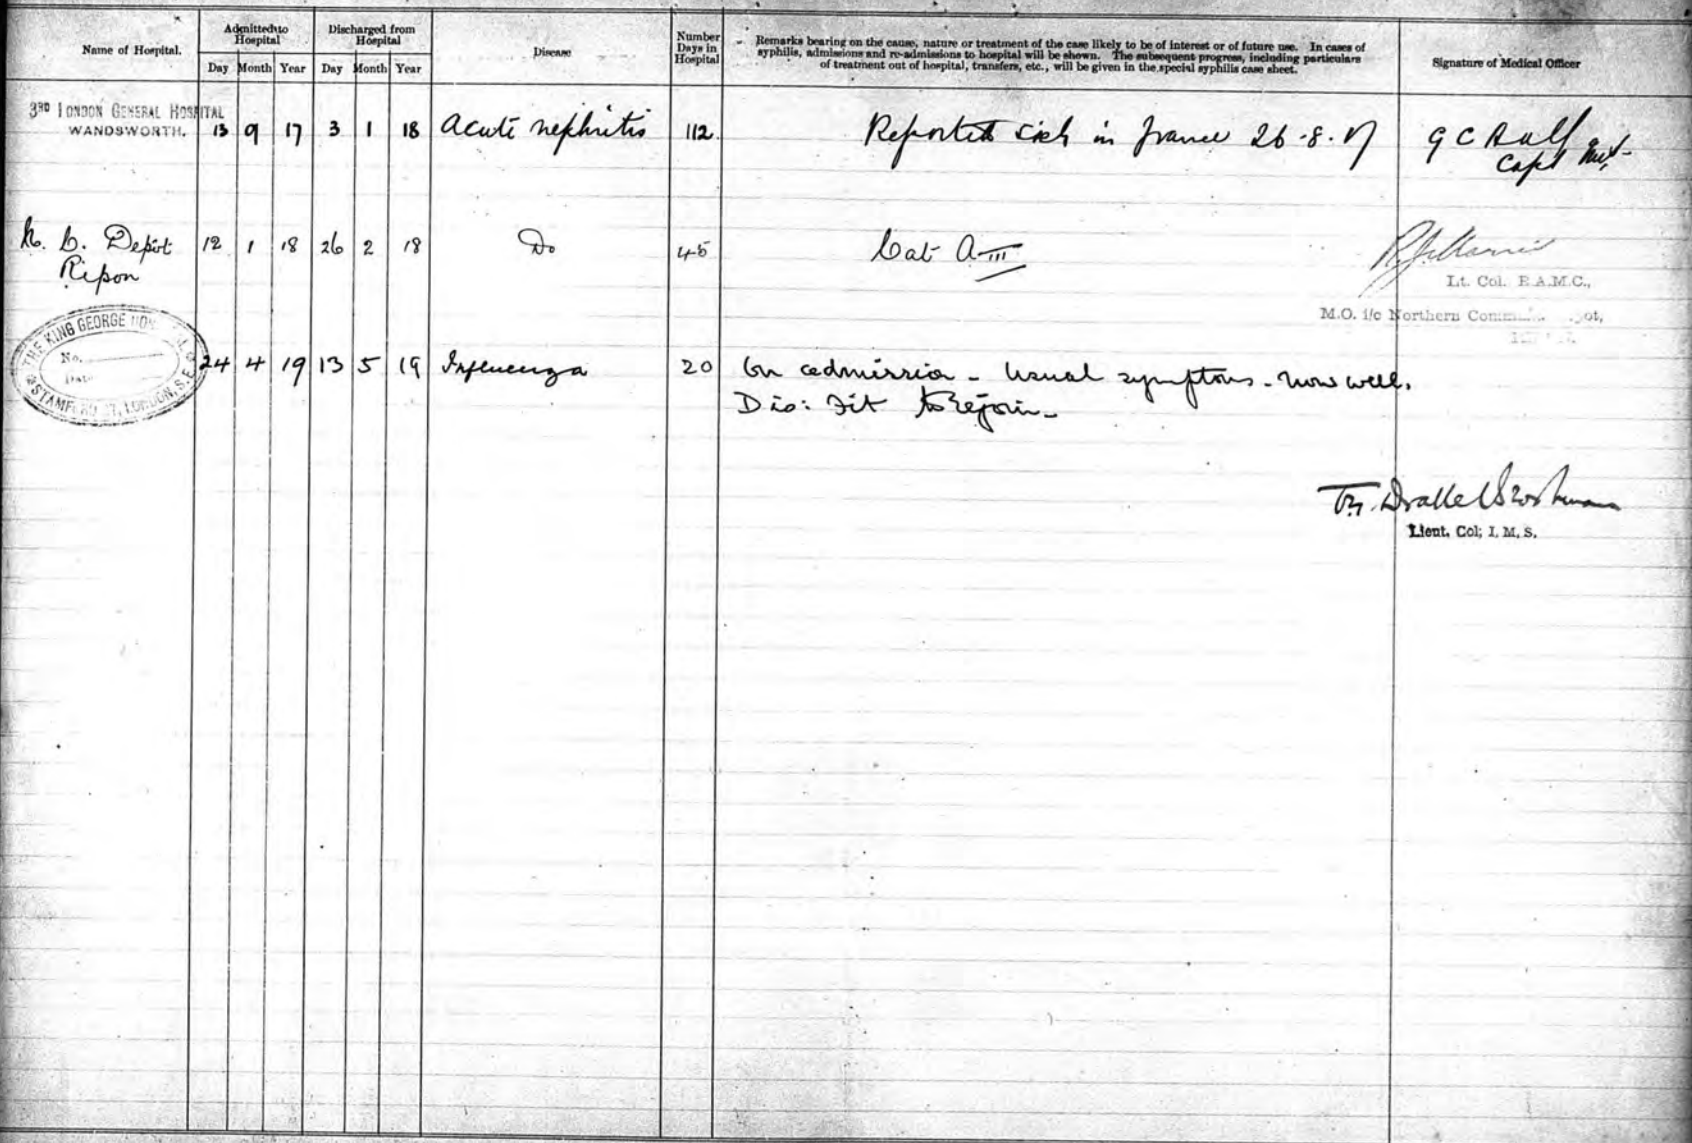 Name of Hospital.
Admitted to Hospital
Discharged from Hospital
Disease
Number Days in Hospital
Remarks bearing on the cause, nature or treatment of the case likely to be of interest or of future use. In cases of
syphilis, admissions and re-admissions to hospital will be shown. The subsequent progress, including particulars
of treatment out of hospital, transfers, etc., will be given in the special syphilis case sheet.
Signature of Medical Officer
Day Month Year Day Month Year
3RD LONDON GENERAL HOSPITAL
WANDSWORTH. 13 9 17 3 1 18 Acute nephritis 112. Reported sick in france 26.8.17 G C
Capt
Depôt 12 1 18 26 2 18 Do 45 Cat A III
Ripon
Lt. Col. R.A.M.C.,
M.O. i/c Northern
THE KING GEORGE
No.
Date
STAMFORD ST, LONDON, S.E.
24 4 19 13 5 19 Influenza 20 On admission - Usual symptoms - now well.
Dis: Fit to rejoin -
Lieut. Col; I. M. S.